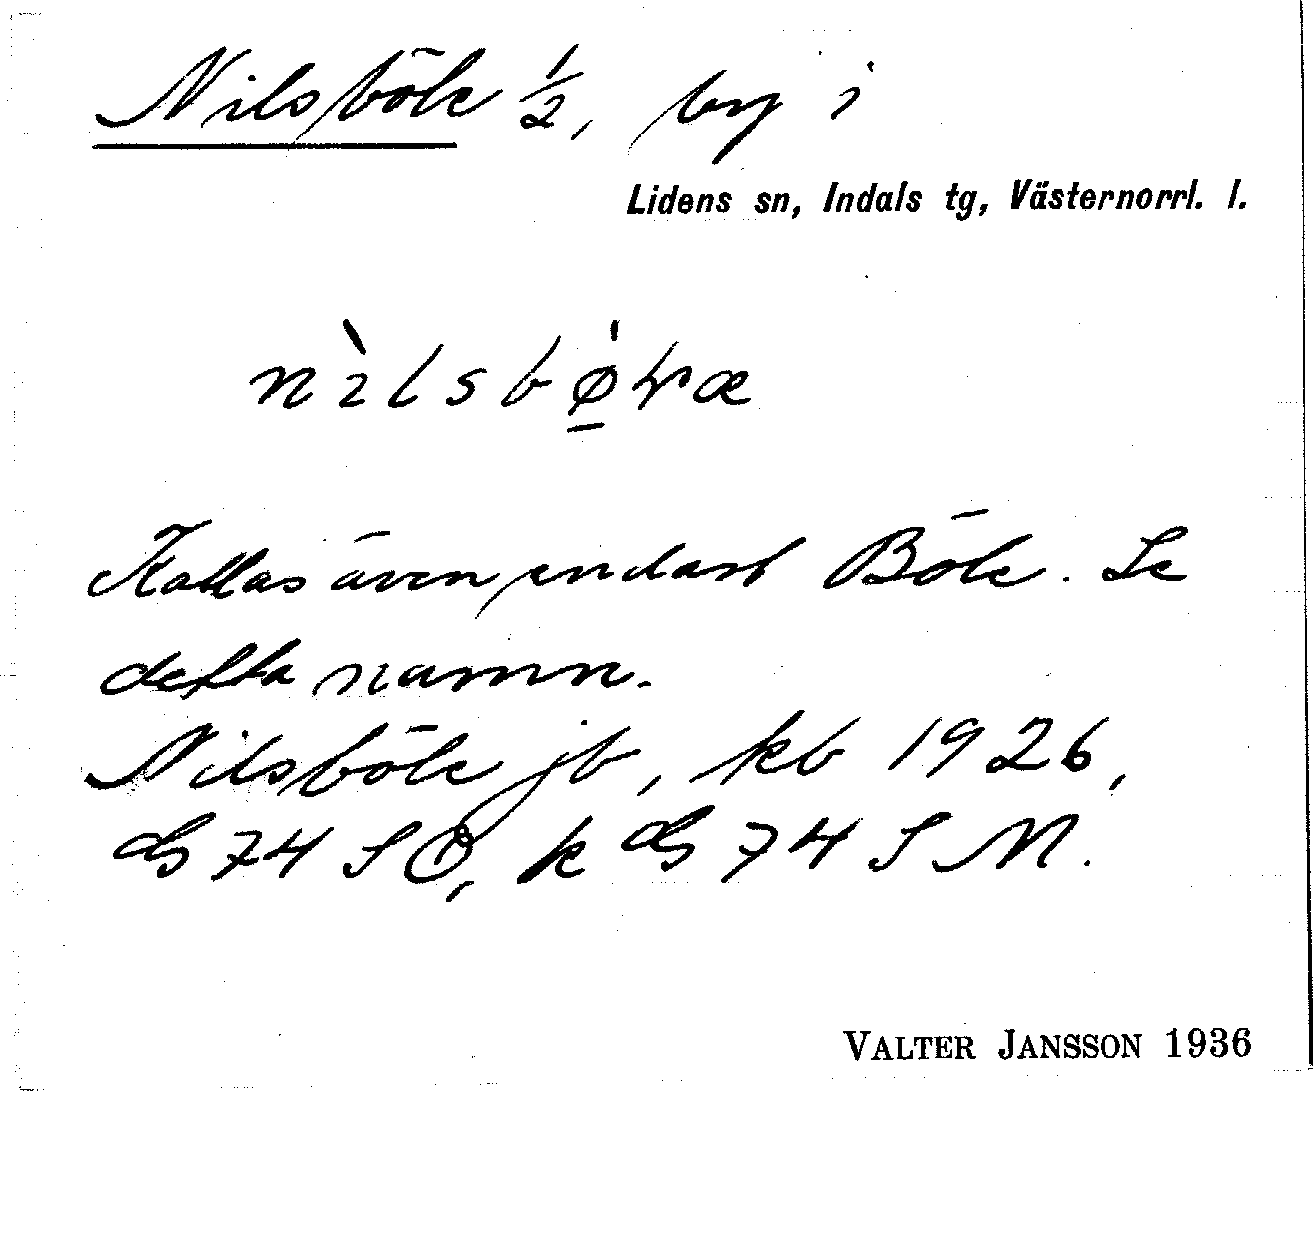 Nilsböle ½, by i
Lidens sn, Indals tg, Västernorrl. l.
Kallas även endast Böle. Se
detta namn.
Nilsböle jb, kb 1926,
GS 74 SÖ, k GS 74 S M.
VALTER JANSSON 1936